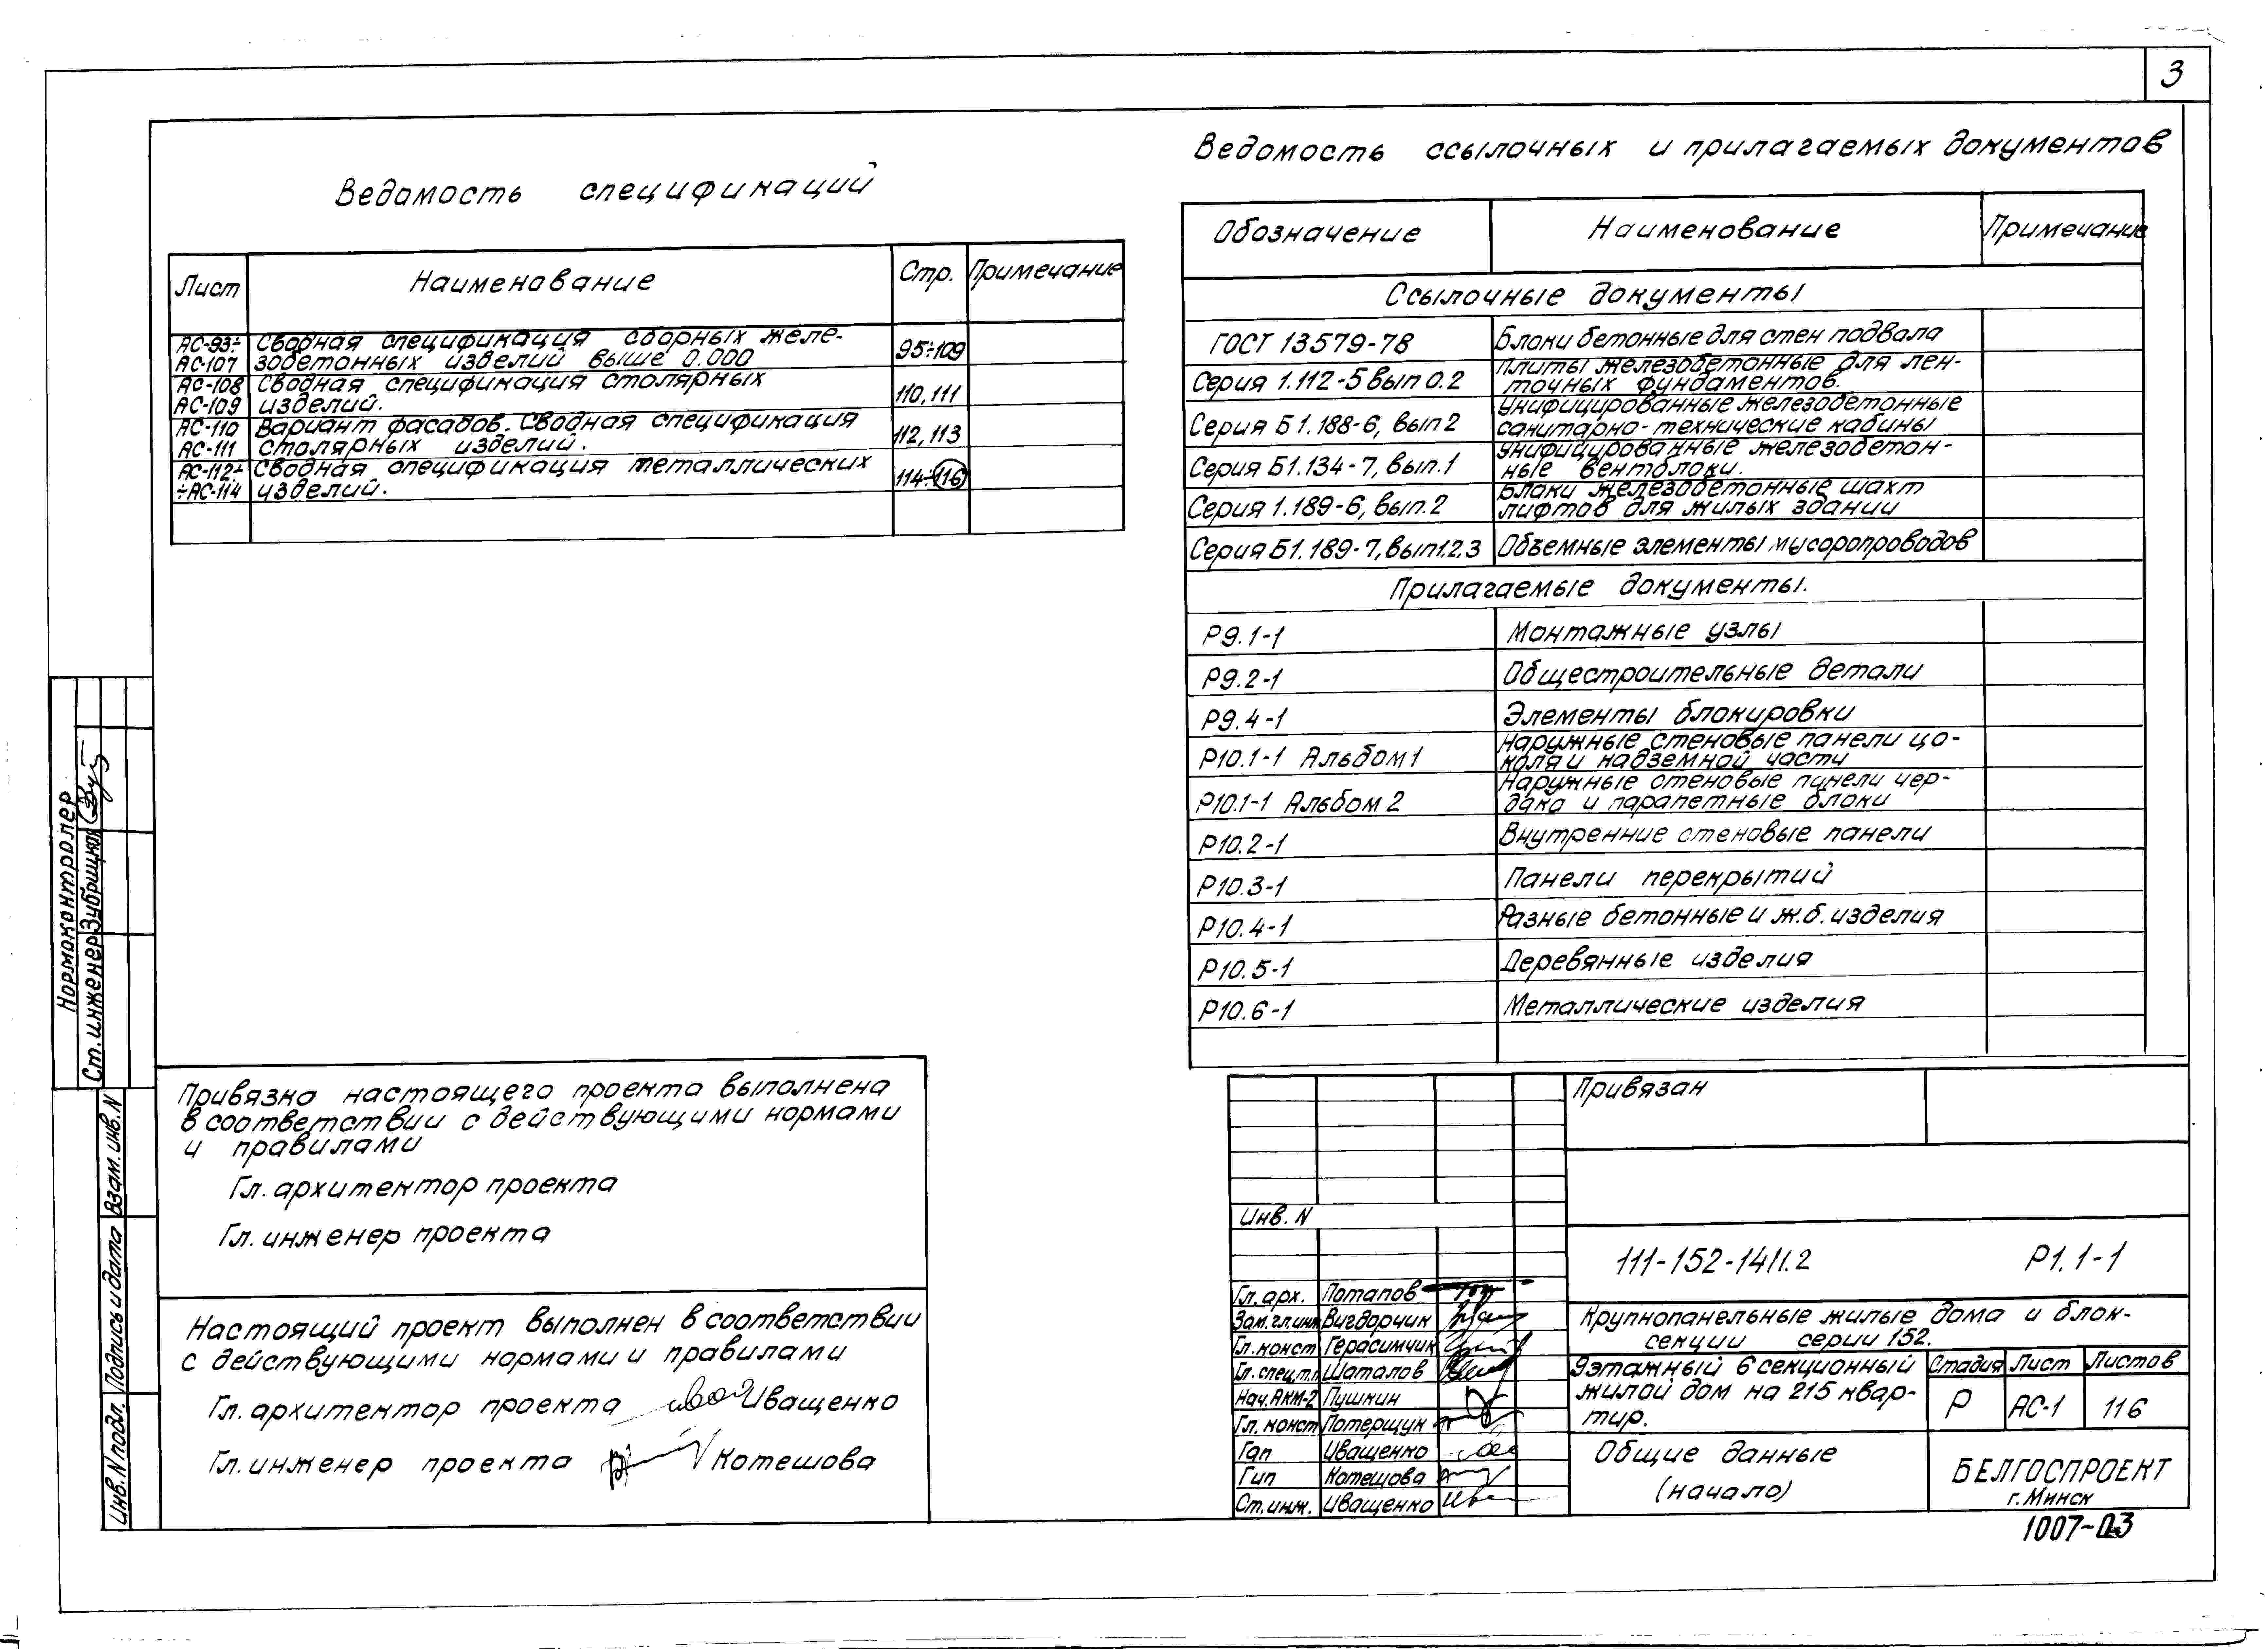 3
Ведомость спецификаций
Лист Наименование Стр. Примечание
АС-93÷ Сводная спецификация сборных желе-
АС-107 зобетонных изделий выше 0.000 95÷109
АС-108 Сводная спецификация столярных
АС-109 изделий. 110, 111
АС-110 Вариант фасадов. Сводная спецификация
АС-111 столярных изделий. 112, 113
АС-112÷ Сводная спецификация металлических
÷АС-114 изделий. 114÷116
Ведомость ссылочных и прилагаемых документов
Обозначение Наименование Примечание
Ссылочные документы
ГОСТ 13579-78 Блоки бетонные для стен подвала
Серия 1.112-5 вып 0.2 Плиты железобетонные для лен-
точных фундаментов.
Серия Б1.188-6, вып 2 Унифицированные железобетонные
санитарно-технические кабины
Серия Б1.134-7, вып.1 Унифицированные железобетон-
ные вентблоки.
Серия 1.189-6, вып.2 Блоки железобетонные шахт
лифтов для жилых зданий
Серия Б1.189-7, вып1.2,3 Объемные элементы мусоропроводов
Прилагаемые документы.
Р9.1-1 Монтажные узлы
Р9.2-1 Общестроительные детали
Р9.4-1 Элементы блокировки
Р10.1-1 Альбом 1 Наружные стеновые панели цо-
коля и надземной части
Р10.1-1 Альбом 2 Наружные стеновые панели чер-
дака и парапетные блоки
Р10.2-1 Внутренние стеновые панели
Р10.3-1 Панели перекрытий
Р10.4-1 Разные бетонные и ж.б. изделия
Р10.5-1 Деревянные изделия
Р10.6-1 Металлические изделия
Нормоконтролер
Ст. инженер Зубрицкая
Взам. инв. N
Подпись и дата
Инв. N подл.
Привязка настоящего проекта выполнена
в соответствии с действующими нормами
и правилами
Гл. архитектор проекта
Гл. инженер проекта
Настоящий проект выполнен в соответствии
с действующими нормами и правилами
Гл. архитектор проекта Иващенко
Гл. инженер проекта Котешова
Привязан
Инв. N
111-152-14/1.2 Р1.1-1
Гл. арх. Потапов
Зам. гл. инж Вигдорчик
Гл. конст Герасимчик
Гл. спец. т.п Шаталов
Нач. АКМ-2 Пушкин
Гл. конст Потерщук
Гап Иващенко
Гип Котешова
Ст. инж. Иващенко
Крупнопанельные жилые дома и блок-
секции серии 152.
9этажный 6 секционный
жилой дом на 215 квар-
тир.
Стадия Лист Листов
Р АС-1 116
Общие данные
(начало)
БЕЛГОСПРОЕКТ
г. Минск
1007-03